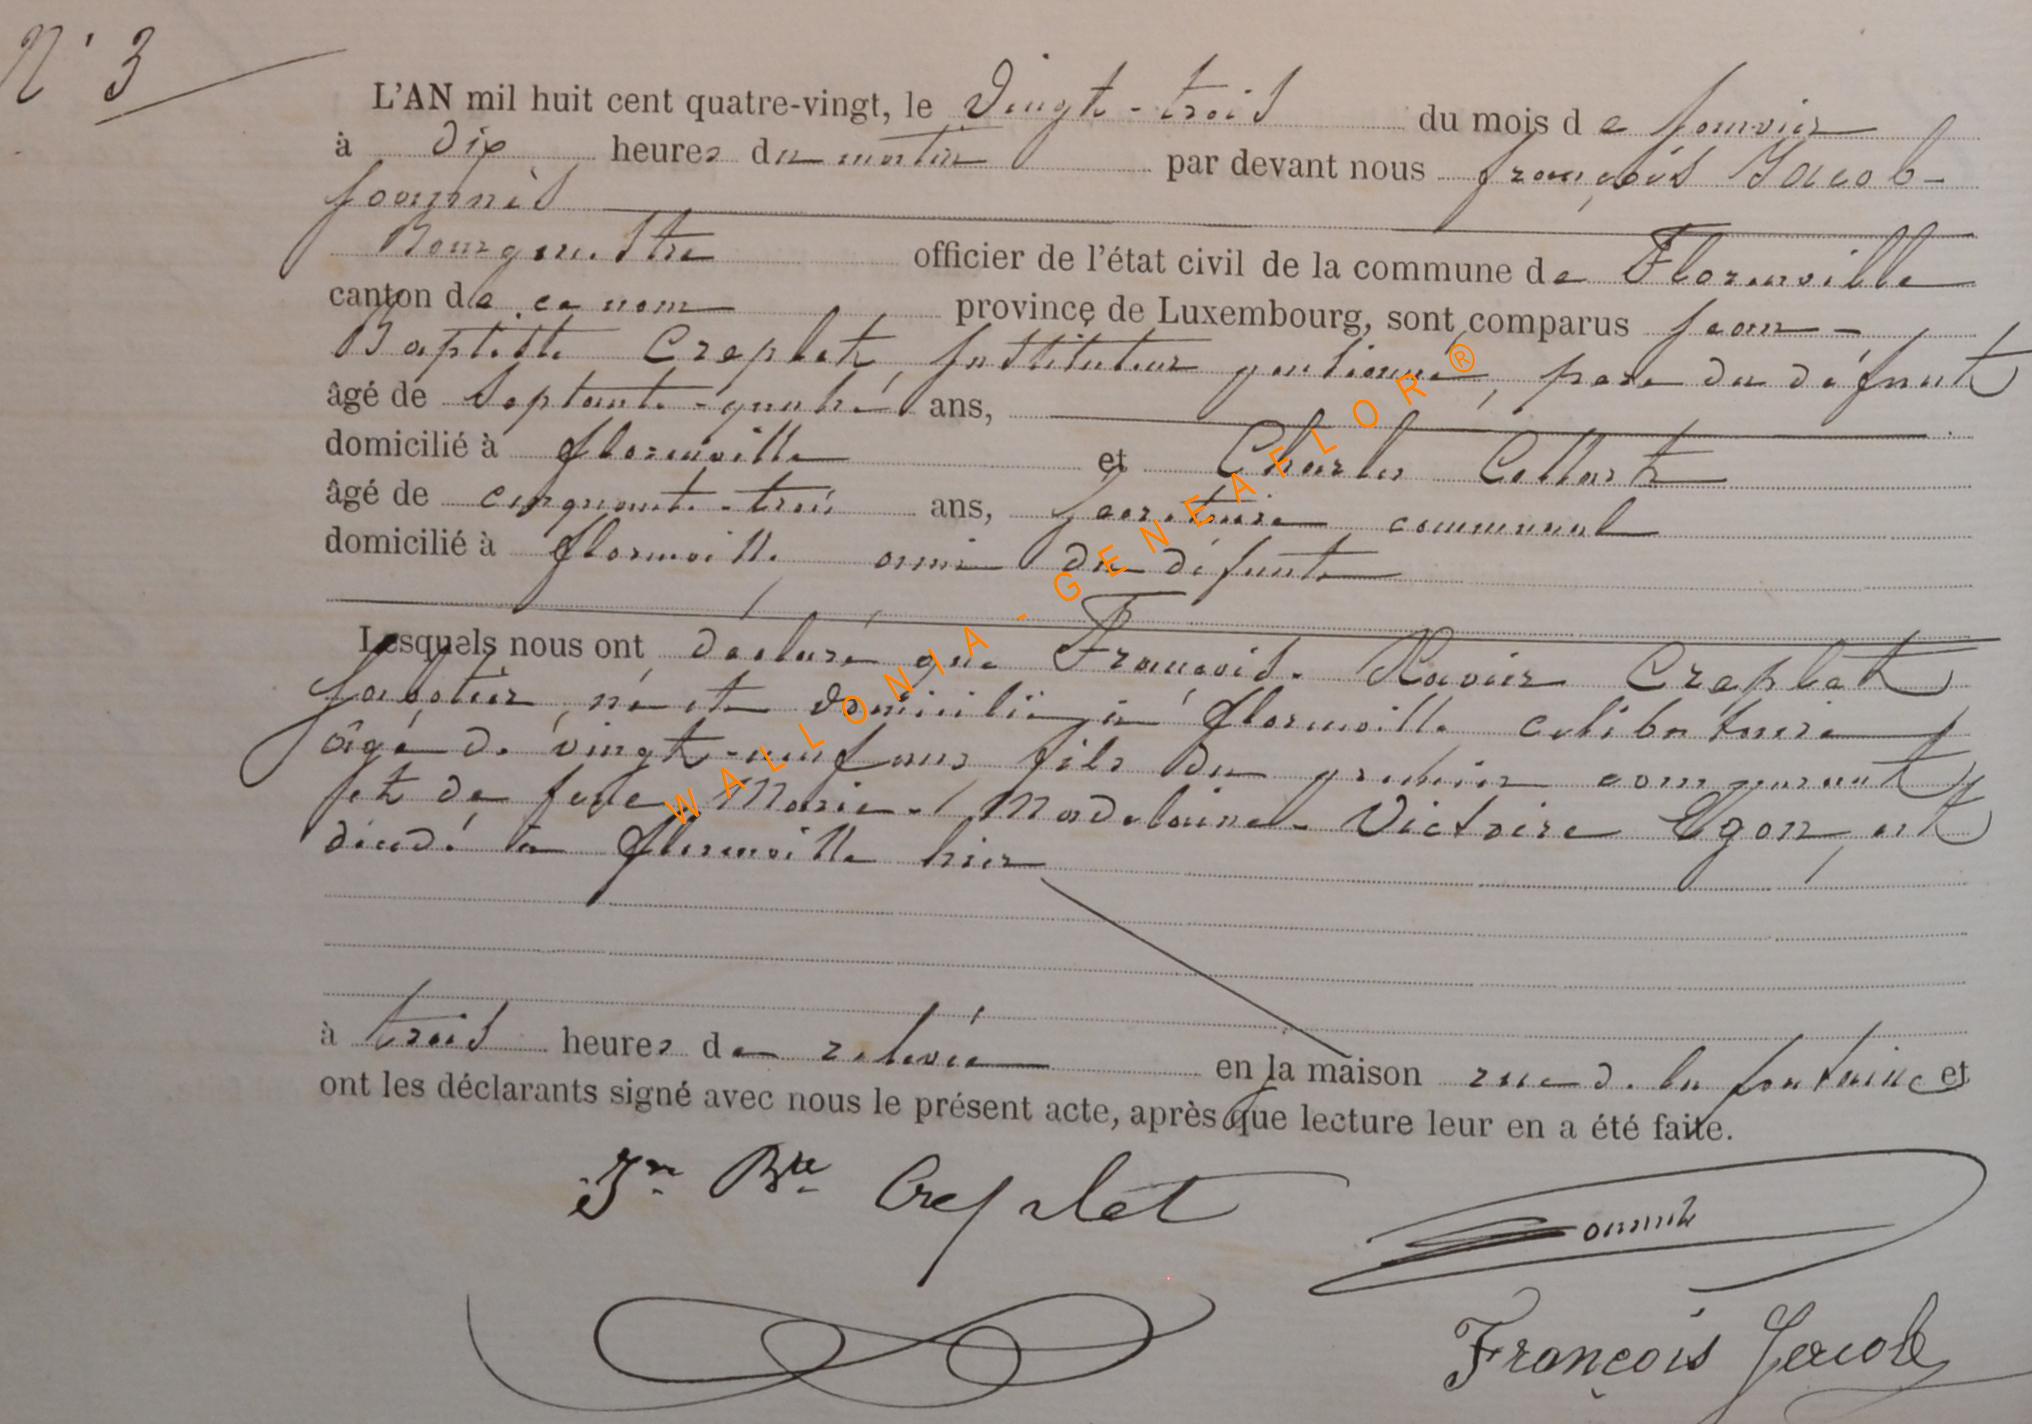 N° 3
L'AN mil huit cent quatre-vingt, le Vingt-trois du mois de Janvier
à dix heures du matin par devant nous François Jacob-
Joannès
Bourgmestre officier de l'état civil de la commune de Florenville
canton de ce nom province de Luxembourg, sont comparus Jean-
Baptiste Creplet, Instituteur pensionné, père du défunt
âgé de Septante-quatre ans,
domicilié à Florenville et Charles Collart
âgé de cinquante-trois ans, Secrétaire communal
domicilié à Florenville ami du défunt
Lesquels nous ont déclaré que François-Xavier Creplet
Sabotier, né et domicilié à Florenville célibataire
âgé de vingt-neuf ans, fils du premier comparant
et de feue Marie-Madelaine-Victoire Ugon, est
décédé à Florenville hier
à trois heures de relevée en la maison rue de la fontaine et
ont les déclarants signé avec nous le présent acte, après que lecture leur en a été faite.
Jn Bte Creplet
François Jacob
WALLONIA-GENEAFLOR®